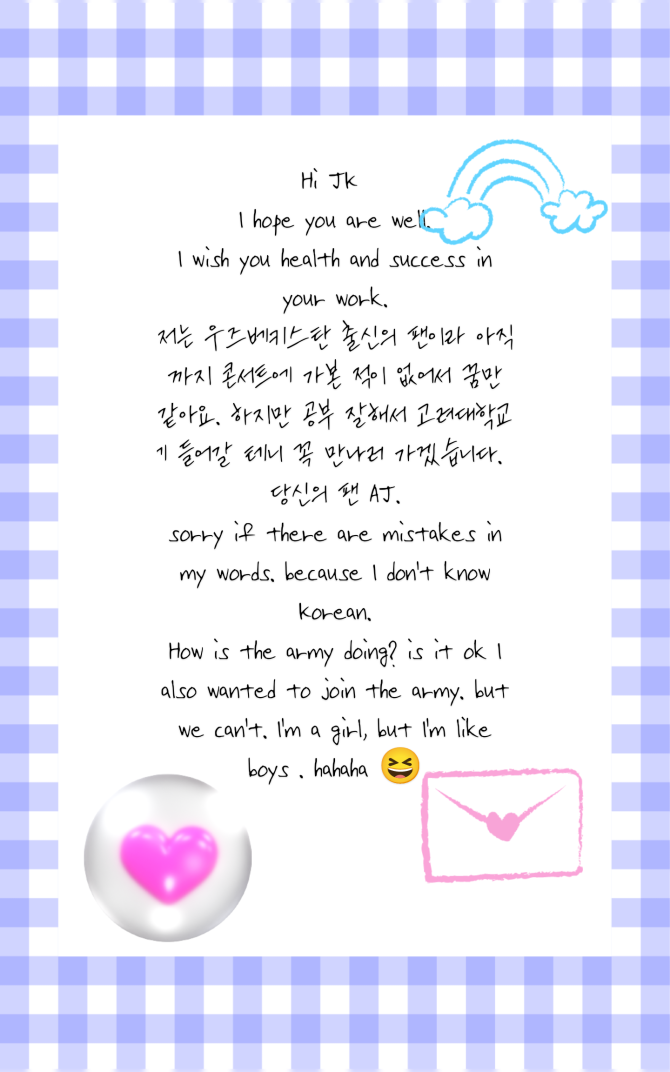 Hi Jk
I hope you are well.
I wish you health and success in
your work.
저는 우즈베키스탄 출신의 팬이라 아직
까지 콘서트에 가본 적이 없어서 꿈만
같아요. 하지만 공부 잘해서 고려대학교
에 들어갈 테니 꼭 만나러 가겠습니다.
당신의 팬 AJ.
sorry if there are mistakes in
my words. because I don't know
korean.
How is the army doing? is it ok I
also wanted to join the army. but
we can't. I'm a girl, but I'm like
boys . hahaha 😆